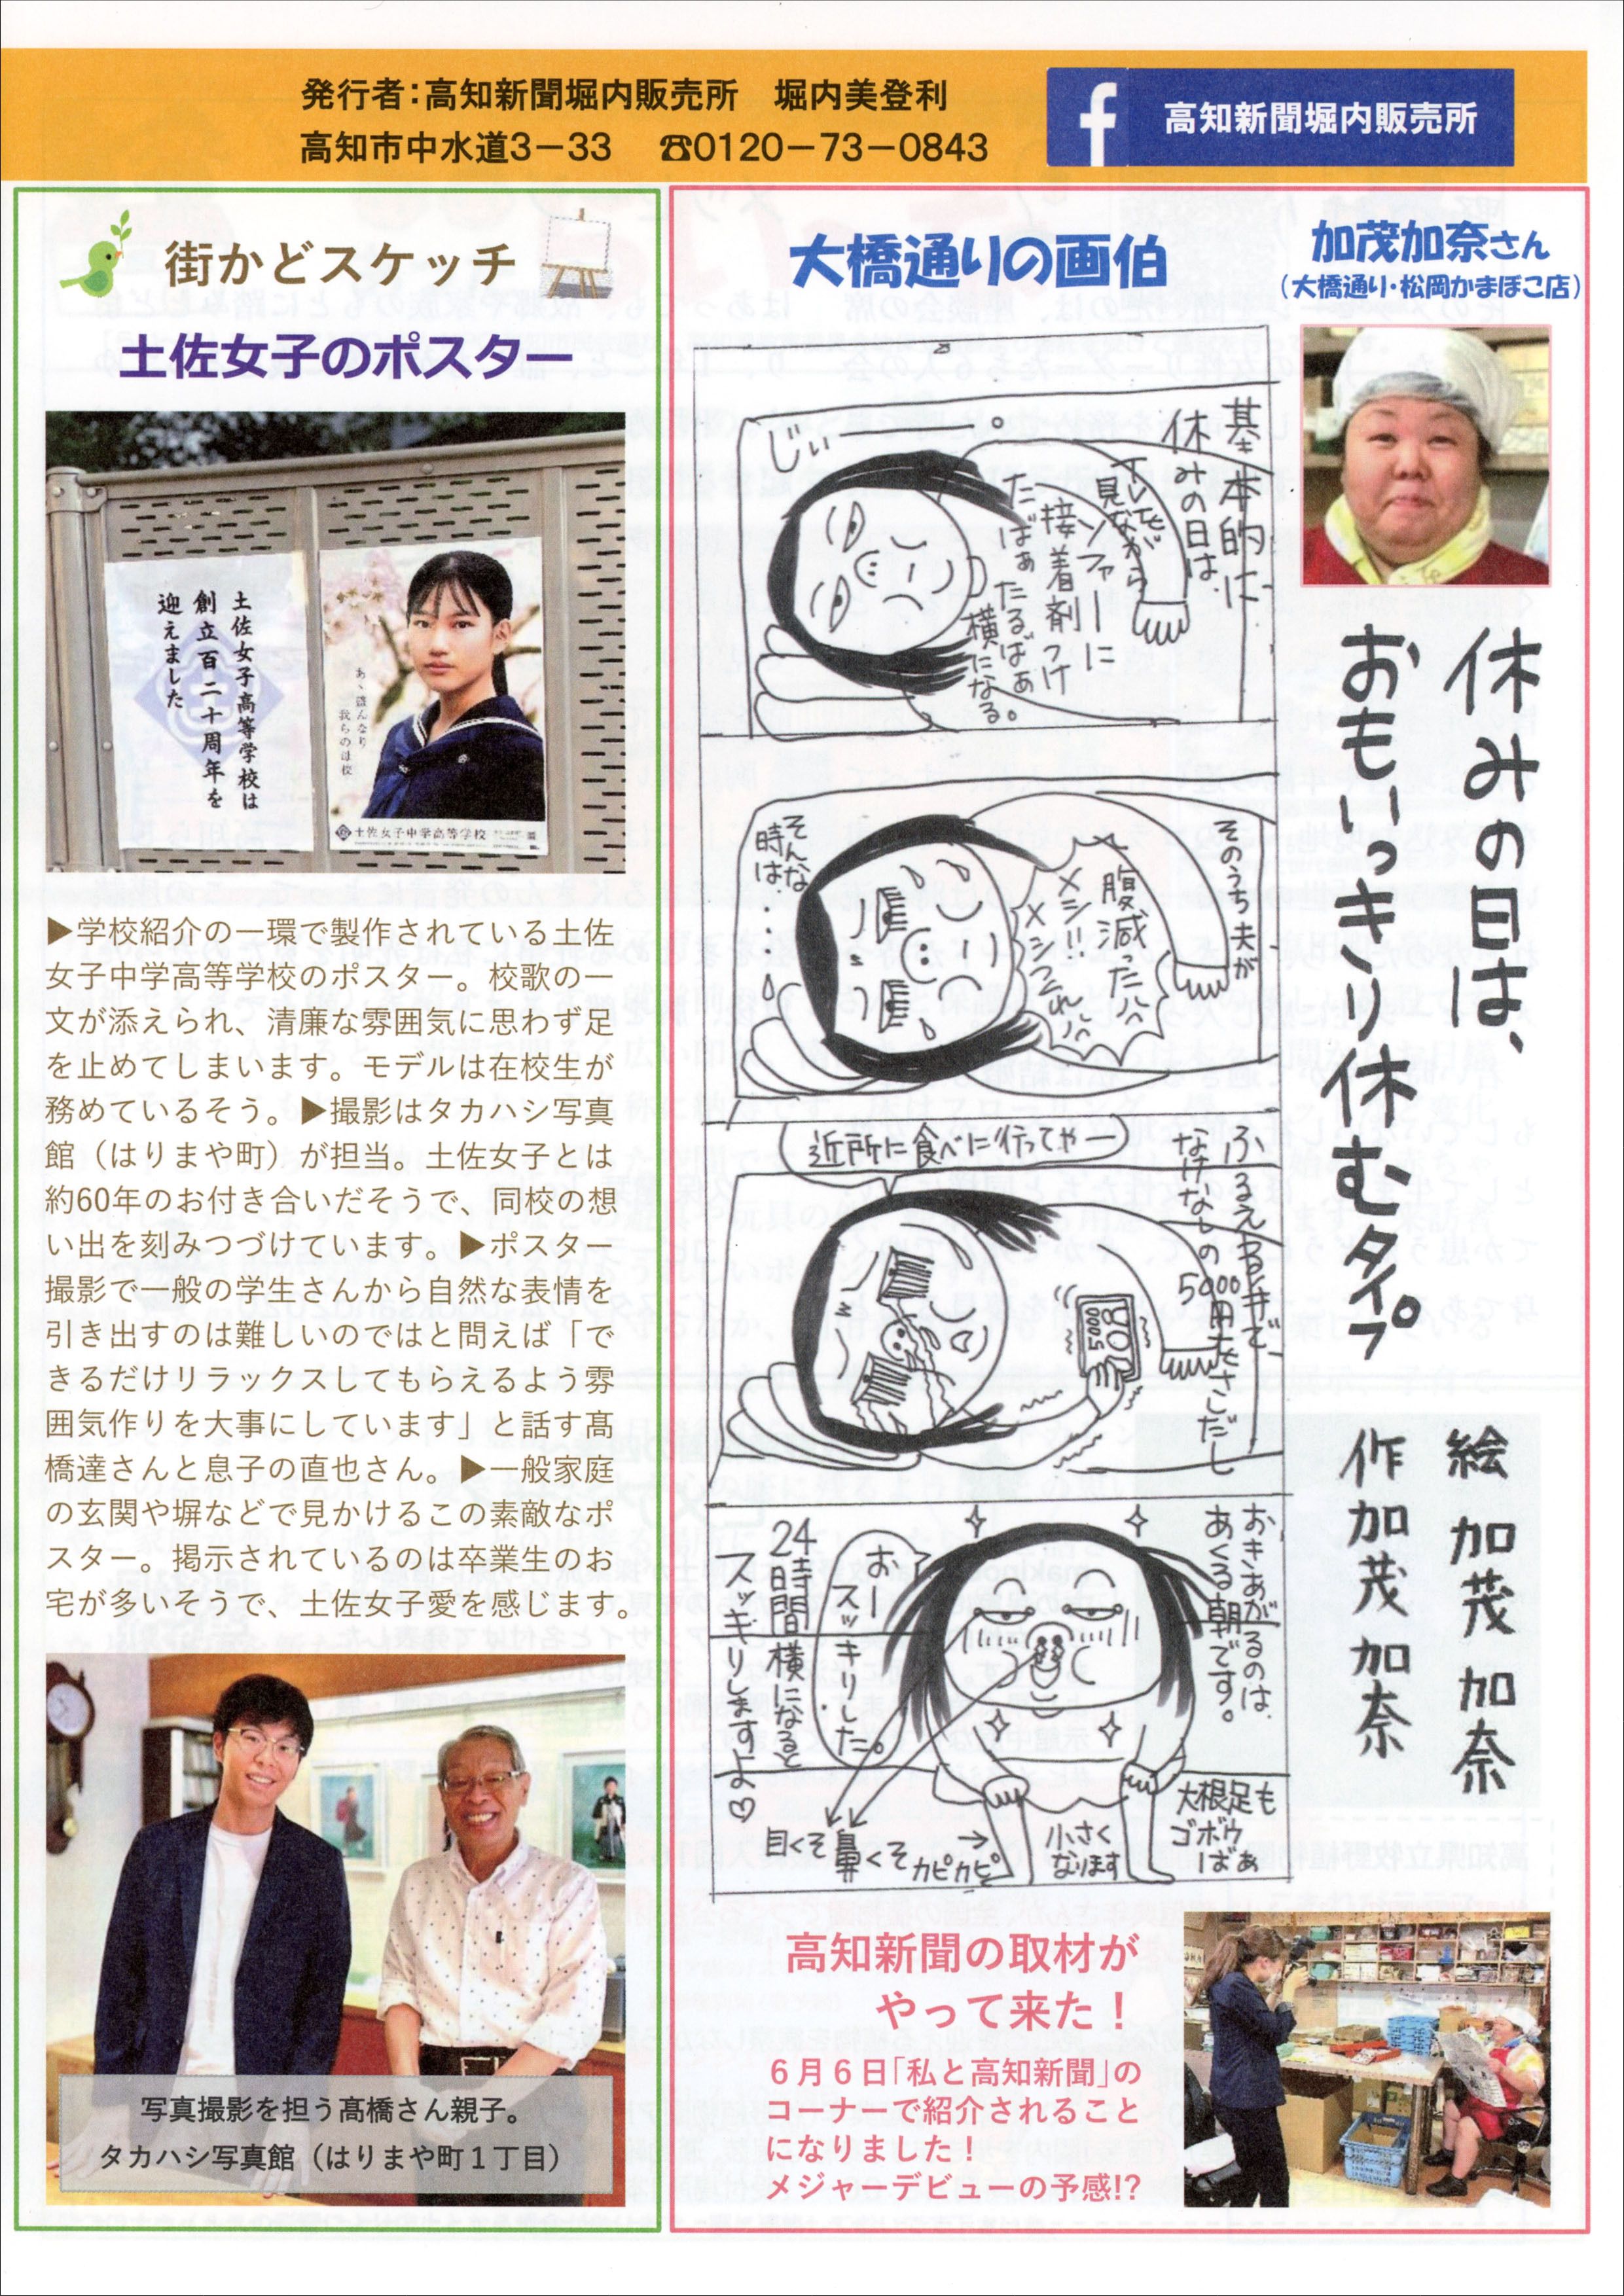 発行者：高知新聞堀内販売所　堀内美登利
高知市中水道3－33　☎0120－73－0843
高知新聞堀内販売所
街かどスケッチ
土佐女子のポスター
土佐女子高等学校は
創立百二十周年を
迎えました
あゝ盛んなり
我らの母校
土佐女子中学高等学校
▶学校紹介の一環で製作されている土佐
女子中学高等学校のポスター。校歌の一
文が添えられ、清廉な雰囲気に思わず足
を止めてしまいます。モデルは在校生が
務めているそう。▶撮影はタカハシ写真
館（はりまや町）が担当。土佐女子とは
約60年のお付き合いだそうで、同校の想
い出を刻みつづけています。▶ポスター
撮影で一般の学生さんから自然な表情を
引き出すのは難しいのではと問えば「で
きるだけリラックスしてもらえるよう雰
囲気作りを大事にしています」と話す髙
橋達さんと息子の直也さん。▶一般家庭
の玄関や塀などで見かけるこの素敵なポ
スター。掲示されているのは卒業生のお
宅が多いそうで、土佐女子愛を感じます。
写真撮影を担う髙橋さん親子。
タカハシ写真館（はりまや町１丁目）
大橋通りの画伯
加茂加奈さん
（大橋通り・松岡かまぼこ店）
休みの日は、
おもいっきり休むタイプ。
絵 加茂 加奈
作 加茂 加奈
基本的に
休みの日は、
テレビ
見ながら
ソファーに
接着剤つけ
たばぁ たるばぁ
横になる。
じぃー
そのうち夫が
腹減った!!
メシ!!
メシつくれ!!
そんな
時は・・・
ふるえる手で、
なけなしの5000円札をさしだし
近所に食べに行ってやー
5000
おきあがるのは、
あくる朝です。
おー
スッキリした。
24時間横になると
スッキリしますよ♡
目くそ鼻くそ カピカピ
小さく
なります
大根足も
ゴボウ
ばぁ
高知新聞の取材が
やって来た！
６月６日「私と高知新聞」の
コーナーで紹介されること
になりました！
メジャーデビューの予感!?